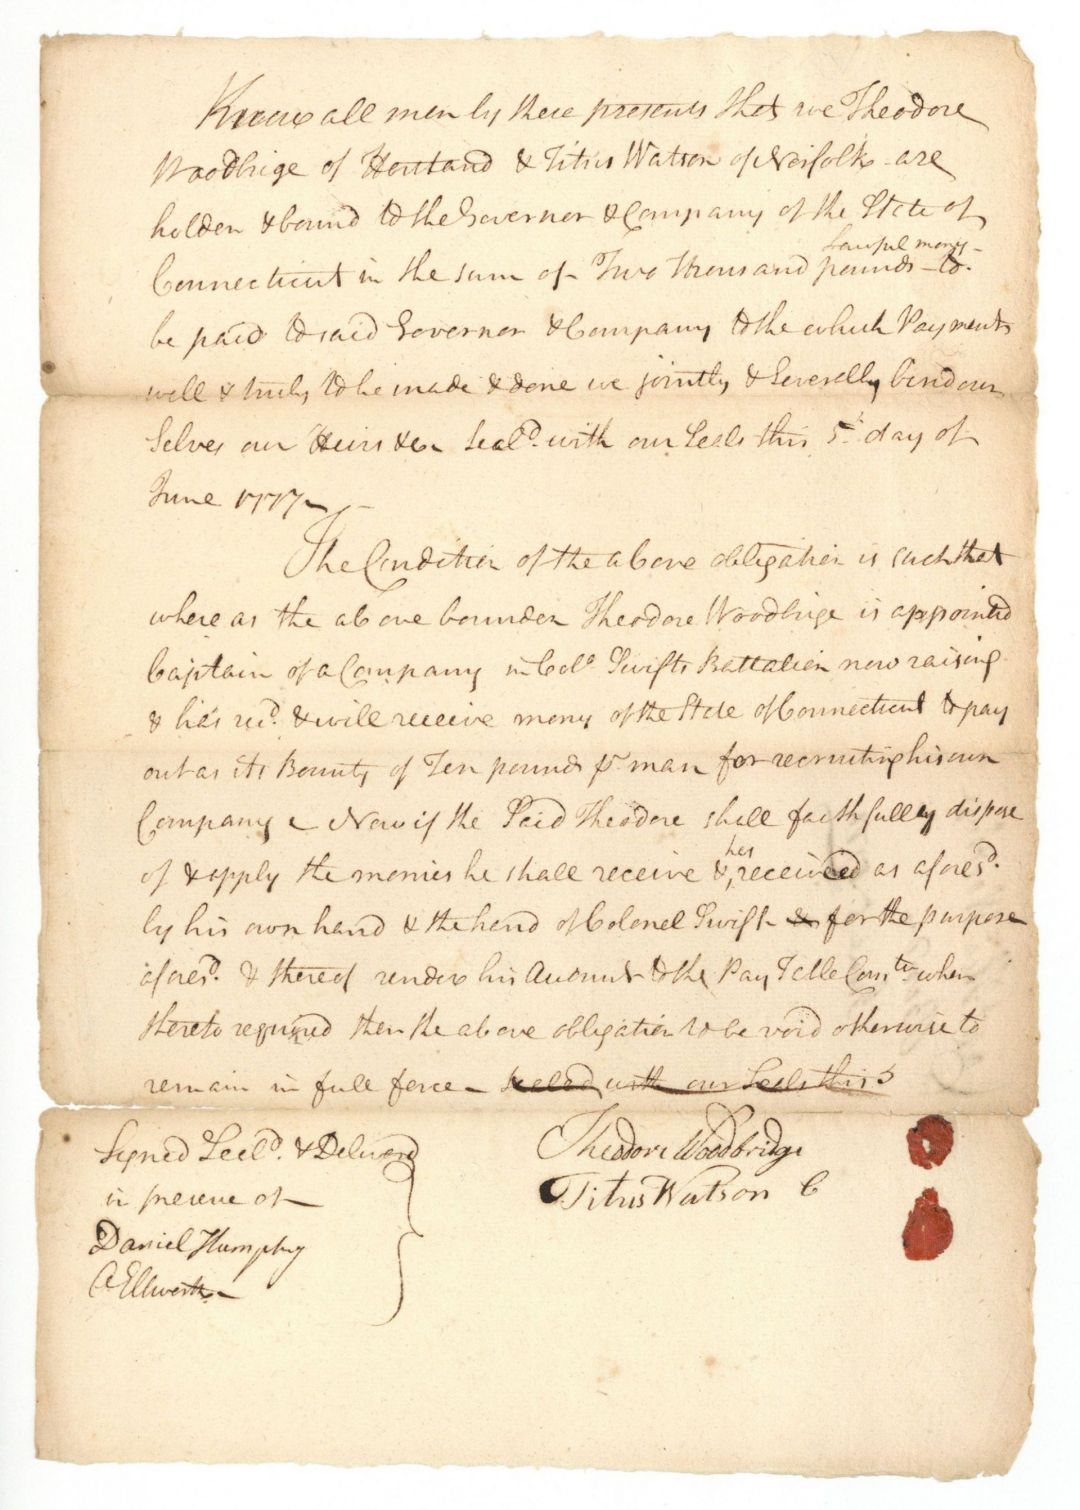 Know all men by these presents that we Theodore
Woodbrige of Hartland & Titus Watson of Norfolk are
holden & bound to the Governor & Company of the State of
Connecticut in the sum of Two thousand pounds Lawful mony to
be paid to said Governor & Company to the which Payments
well & truly to be made & done we jointly & Severally bind our
Selves our Heirs &c Seald. with our Seals this 5th day of
June 1777
The Condition of the above obligation is such that
where as the above bounden Theodore Woodbrige is appointed
Captain of a Company in Colo. Swifts Battalion now raising
& has recd. & will receive mony of the State of Connecticut to pay
out as its Bounty of Ten pounds pr. man for recruiting his own
Company Now if the Said Theodore shall faithfully dispose
of & apply the monies he shall receive & has received as aforesd.
by his own hand & the hand of Colonel Swift for the purpose
aforesd. & thereof render his Accounts to the Pay Table Comte. when
thereto required then the above obligation to be void otherwise to
remain in full force sealed with our Seals this 5
Signed Seald. & Deliverd
in presence of
Daniel Humphry
Ellworth
Theodore Woodbridge
Titus Watson